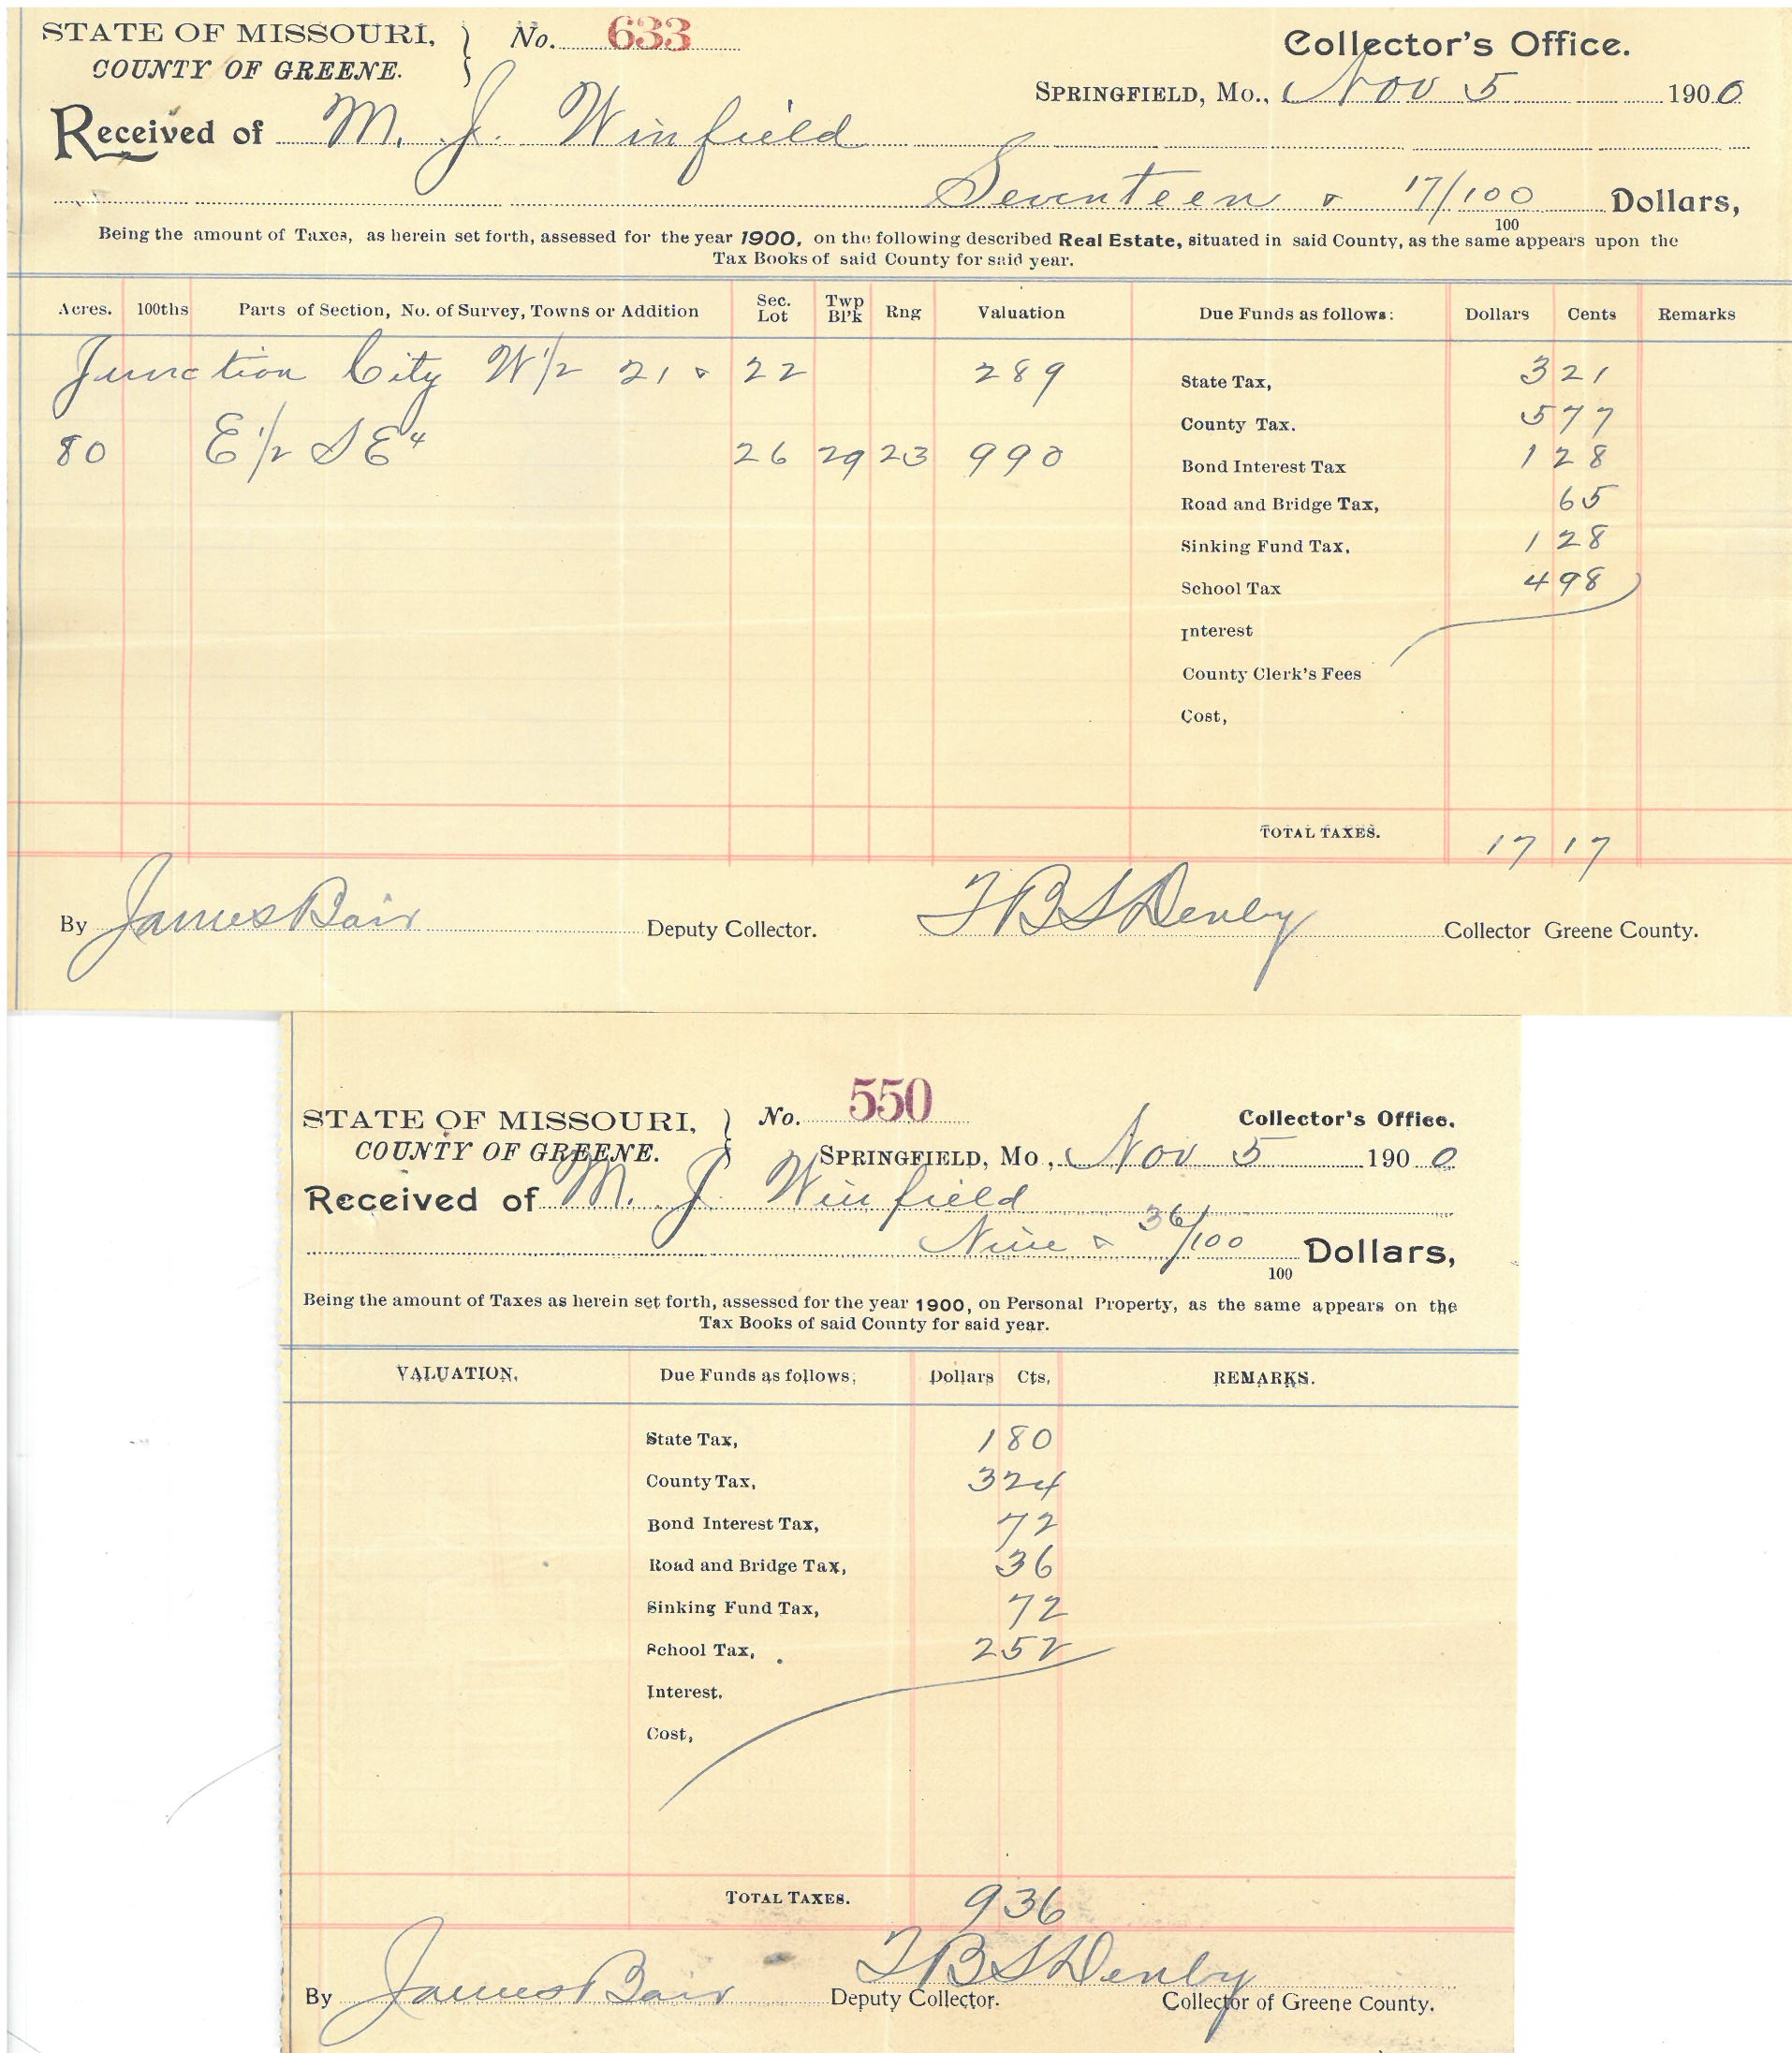 STATE OF MISSOURI, } No. 633 Collector's Office.
COUNTY OF GREENE. SPRINGFIELD, Mo., Nov 5 1900
Received of M. J. Winfield
Seventeen & 17/100 Dollars,
100
Being the amount of Taxes, as herein set forth, assessed for the year 1900, on the following described Real Estate, situated in said County, as the same appears upon the
Tax Books of said County for said year.
Acres. 100ths Parts of Section, No. of Survey, Towns or Addition Sec. Lot Twp Bl'k Rng Valuation Due Funds as follows: Dollars Cents Remarks
Junction City W 1/2 21 & 22 289 State Tax, 3 21
County Tax. 5 77
80 E 1/2 S E 4 26 29 23 990 Bond Interest Tax 1 28
Road and Bridge Tax, 65
Sinking Fund Tax, 1 28
School Tax 4 98
Interest
County Clerk's Fees
Cost,
TOTAL TAXES. 17 17
By James Bair Deputy Collector. T B S Denby Collector Greene County.
STATE OF MISSOURI, } No. 550 Collector's Office.
COUNTY OF GREENE. SPRINGFIELD, Mo., Nov 5 1900
Received of M. J. Winfield
Nine & 36/100 Dollars,
100
Being the amount of Taxes as herein set forth, assessed for the year 1900, on Personal Property, as the same appears on the
Tax Books of said County for said year.
VALUATION. Due Funds as follows; Dollars Cts. REMARKS.
State Tax, 1 80
County Tax, 3 24
Bond Interest Tax, 72
Road and Bridge Tax, 36
Sinking Fund Tax, 72
School Tax, 2 52
Interest.
Cost,
TOTAL TAXES. 9 36
By James Bair Deputy Collector. T B S Denby Collector of Greene County.